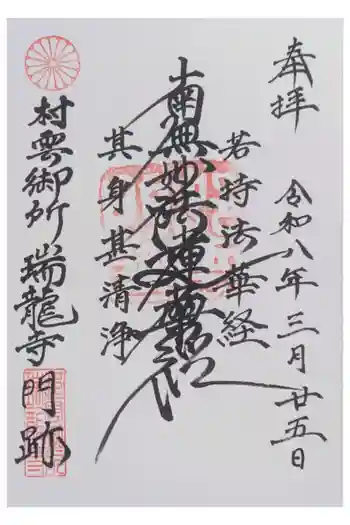 奉拝
令和八年三月廿五日
若持法華経
南無妙法蓮華経
其身甚清浄
村雲御所瑞龍寺門跡